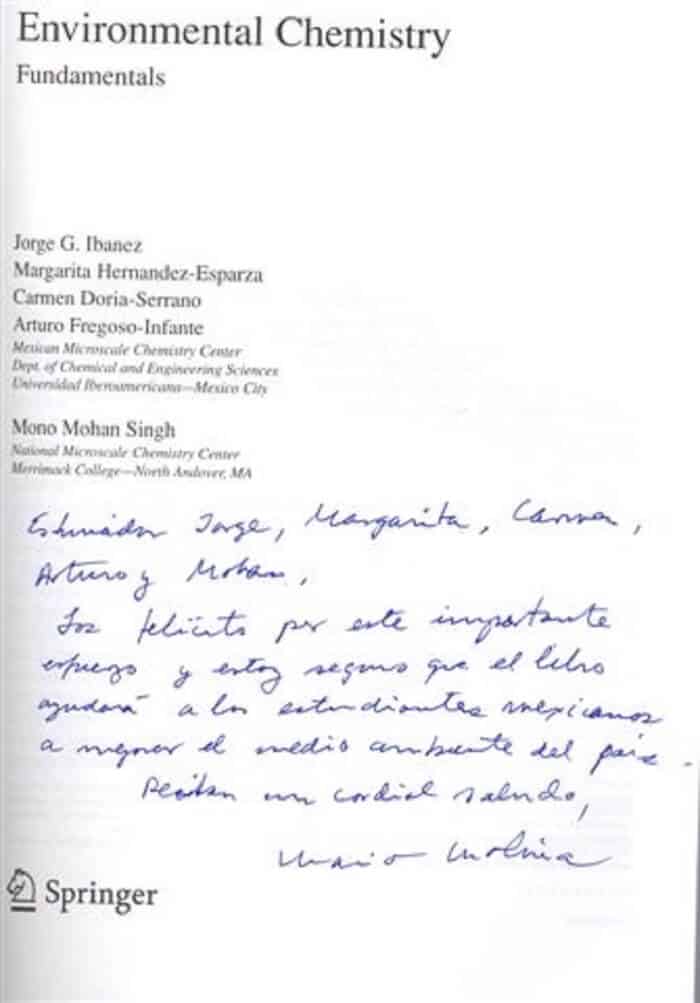 Environmental Chemistry
Fundamentals
Jorge G. Ibanez
Margarita Hernandez-Esparza
Carmen Doria-Serrano
Arturo Fregoso-Infante
Mexican Microscale Chemistry Center
Dept. of Chemical and Engineering Sciences
Universidad Iberoamericana—Mexico City
Mono Mohan Singh
National Microscale Chemistry Center
Merrimack College—North Andover, MA
Estimados Jorge, Margarita, Carmen,
Arturo y Mohan,
Los felicito por este importante
esfuerzo y estoy seguro que el libro
ayudará a los estudiantes mexicanos
a mejorar el medio ambiente del país.
Reciban un cordial saludo,
Mario Molina
Springer